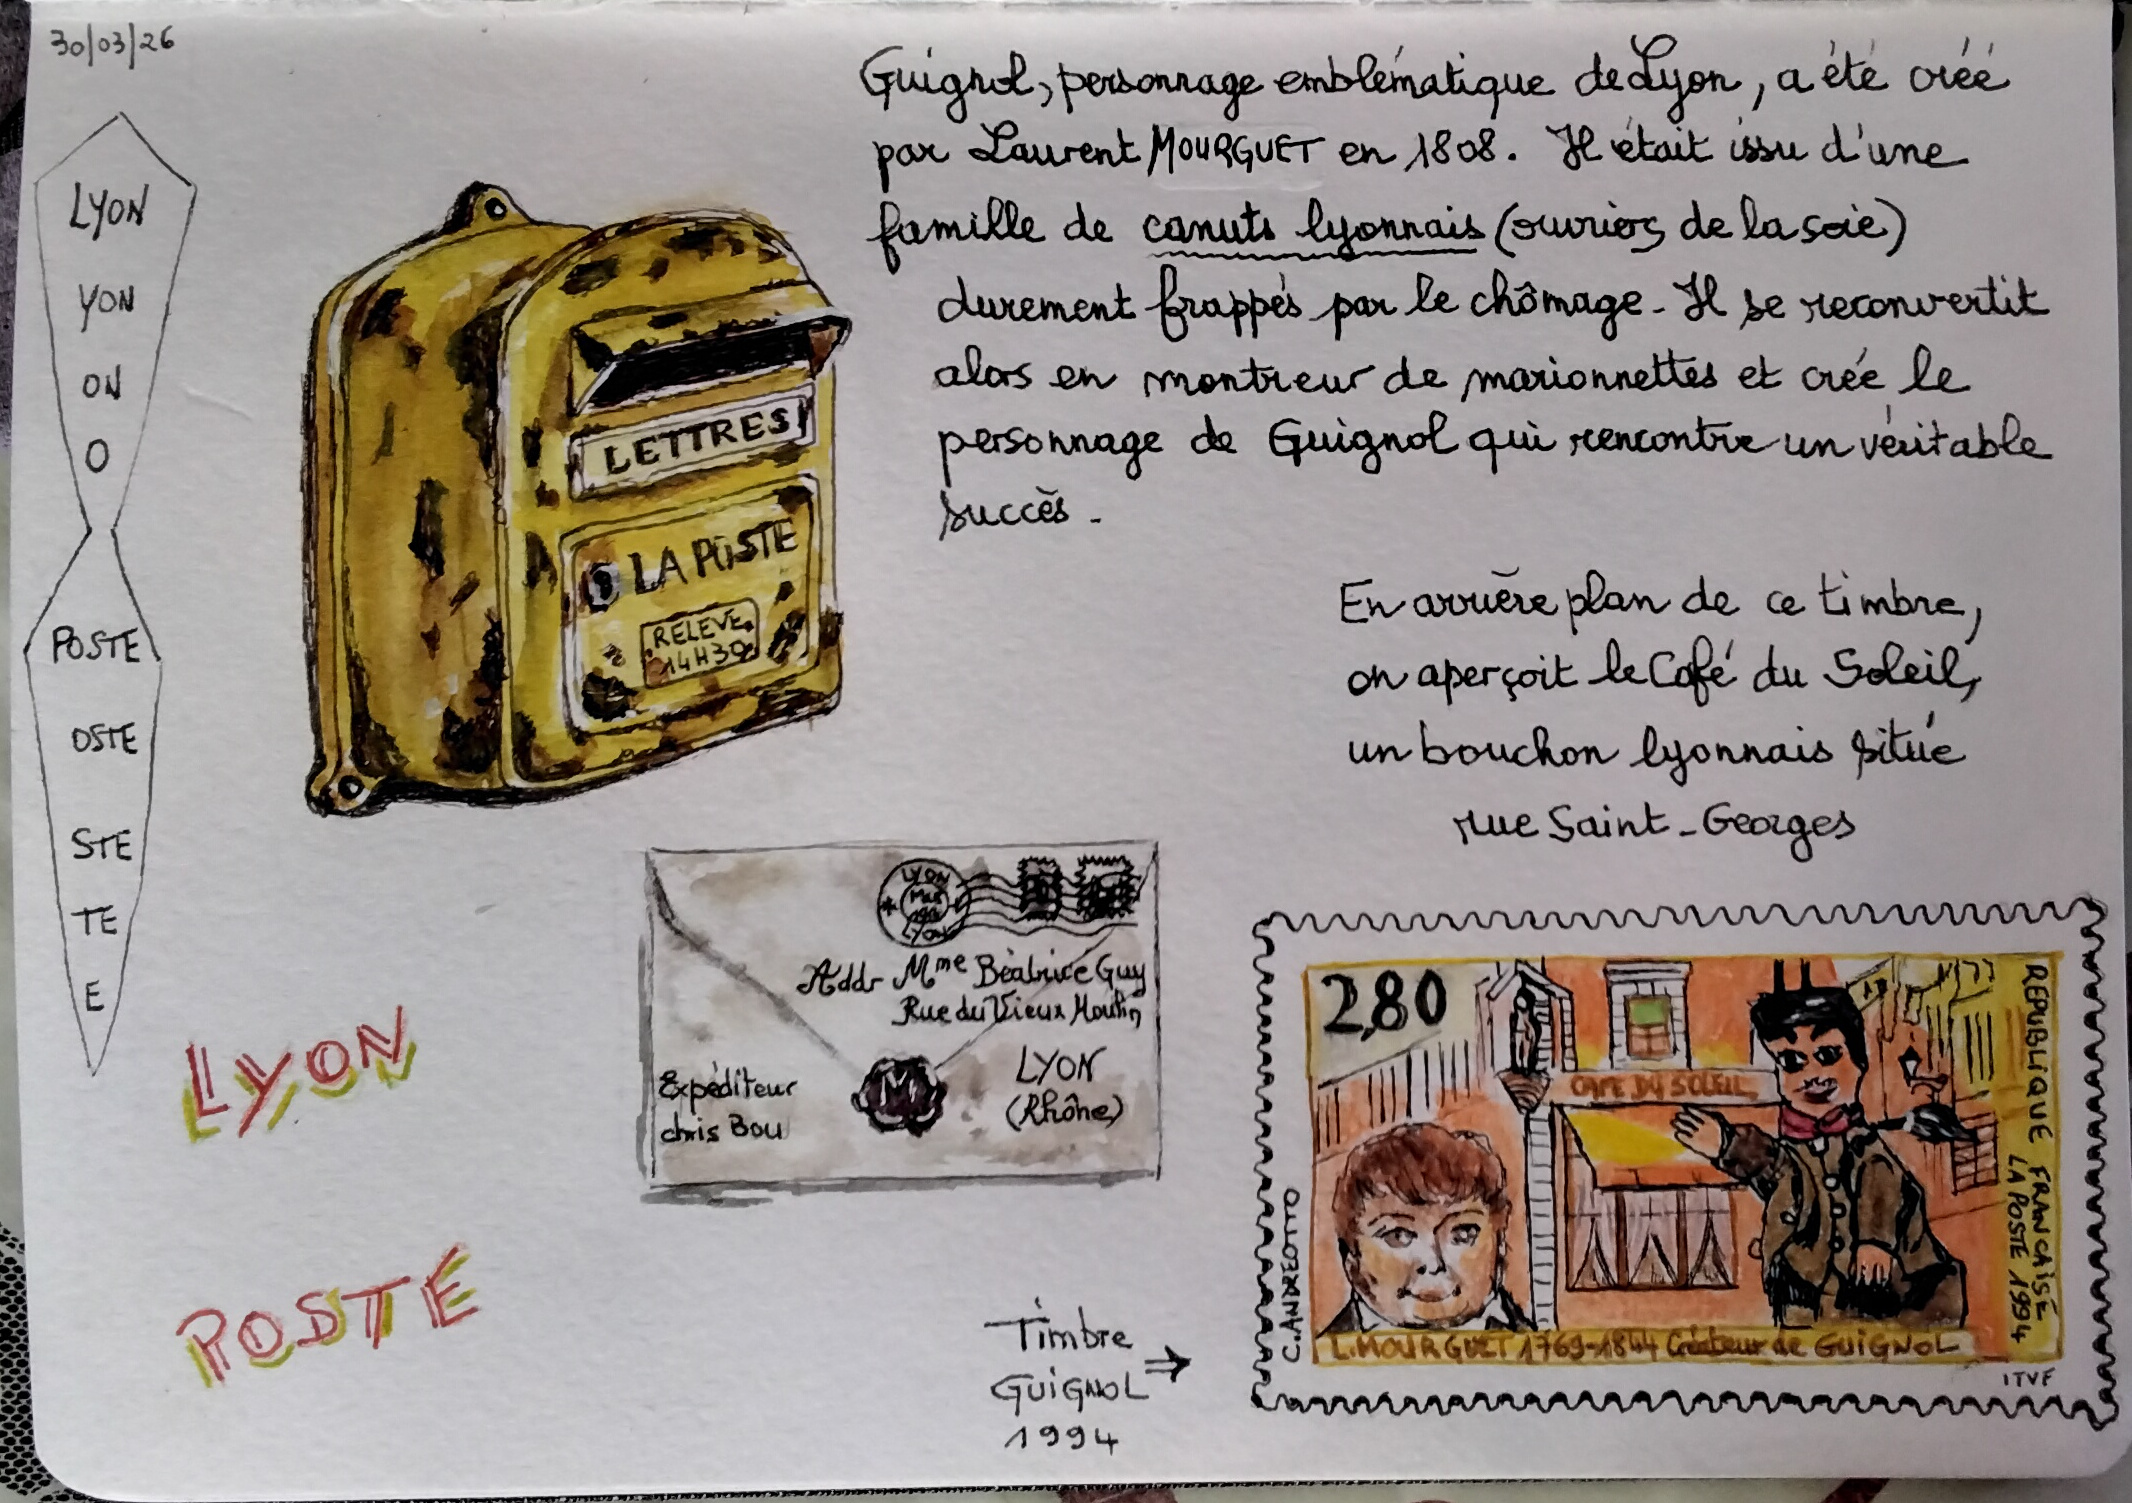 30/03/26
LYON
YON
ON
O
POSTE
OSTE
STE
TE
E
Guignol, personnage emblématique de Lyon, a été créé
par Laurent MOURGUET en 1808. Il était issu d'une
famille de canuts lyonnais (ouvriers de la soie)
durement frappés par le chômage. Il se reconvertit
alors en montreur de marionnettes et créé le
personnage de Guignol qui rencontre un véritable
succès.
LETTRES
LA POSTE
RELEVE
14H30
En arrière plan de ce timbre,
on aperçoit le Café du Soleil,
un bouchon lyonnais situé
rue Saint-Georges
LYON
LYON
Addr Mme Béatrice Guy
Rue du Vieux Moulin
LYON
(Rhône)
Expéditeur
chris Bou
M
LYON
POSTE
Timbre
GUIGNOL
1994
2,80
CAFE DU SOLEIL
REPUBLIQUE FRANCAISE
LA POSTE 1994
C.ANDREOTTO
L.MOURGUET 1769-1844 Créateur de GUIGNOL
ITVF